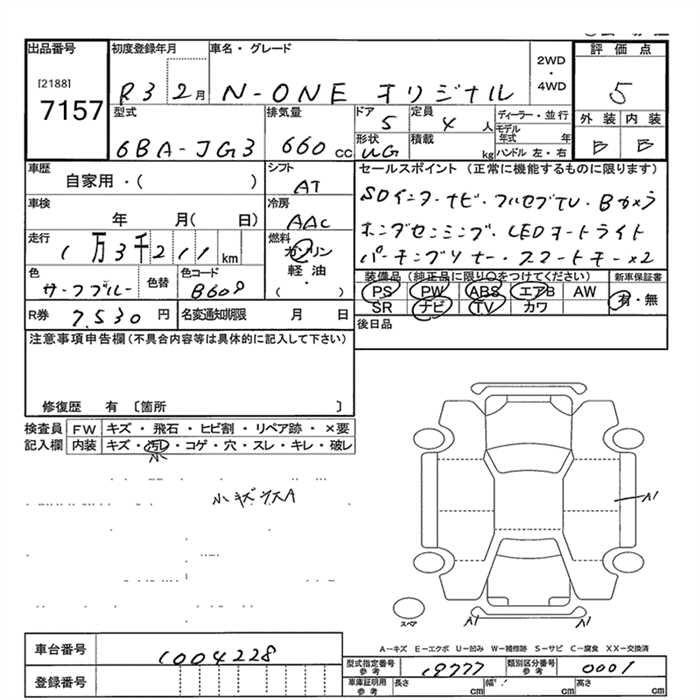 出品番号 初度登録年月 車名・グレード 評価点
[2188] 7157
R3 2月 N-ONE オリジナル 2WD・4WD 5
型式 排気量 ドア 定員 ディーラー・並行 外装 内装
6BA-JG3 660cc 5 4人 モデル年式 年 B B
形状 積載 ハンドル 左・右
UG kg
車歴 シフト セールスポイント (正常に機能するものに限ります)
自家用・( ) AT
車検 冷房 SDインターナビ・フルセグTV・Bカメラ
年 月( 日) AAC ホンダセンシング・LEDオートライト
走行 燃料 パーキングソナー・スマートキー×2
1万3千211km ガソリン
軽油・( )
色 色替 色コード 装備品 (純正品に限り○をつけてください) 新車保証書
サーフブルー B608 PS PW ABS エアB AW 有・無
SR ナビ TV カワ
R券 7,530円 名変通知期限 月 日 後日品
注意事項申告欄(不具合内容等は具体的に記入して下さい)
修復歴 有 〔箇所 〕
検査員 FW キズ・飛石・ヒビ割・リペア跡・×要
記入欄 内装 キズ・汚れ・コゲ・穴・スレ・キレ・破レ
小
小キズウスA
A1
A1 A1
スペア
A-キズ E-エクボ U-凹み W-補修跡 S-サビ C-腐食 XX-交換済
車台番号 1004228
型式指定番号 参考 19777 類別区分番号 参考 0001
登録番号
車庫証明用 参考 長さ cm 幅 cm 高さ cm